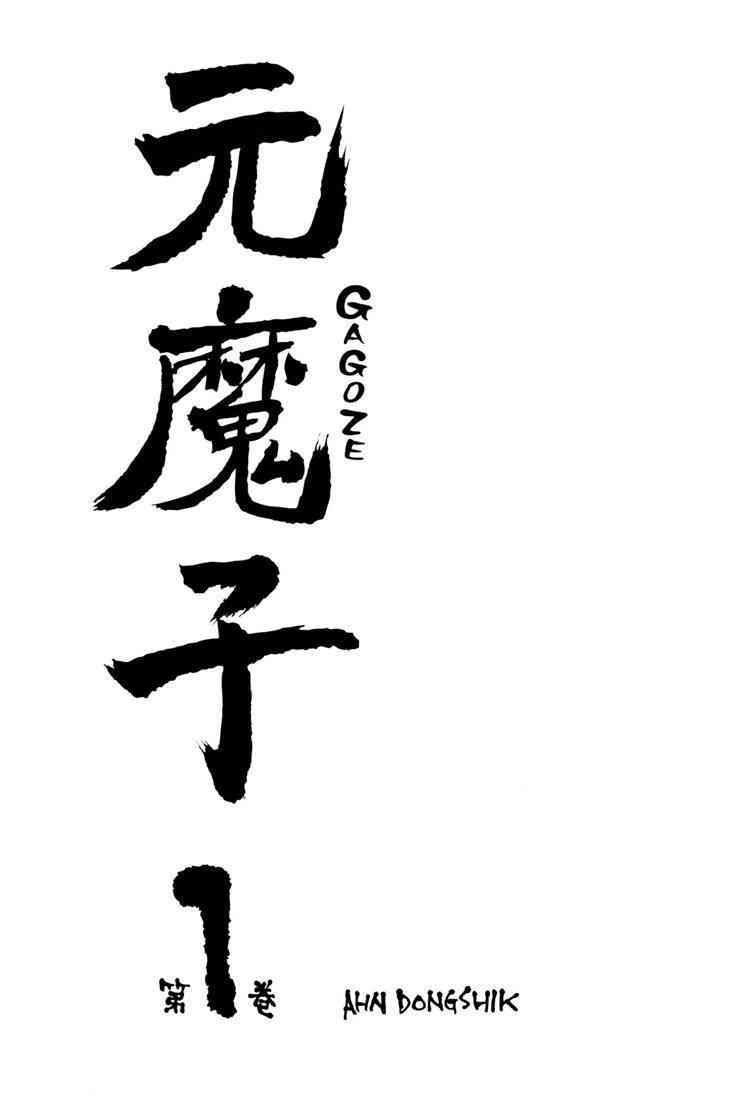 元魔子
GAGOZE
第1巻
AHN DONGSHIK